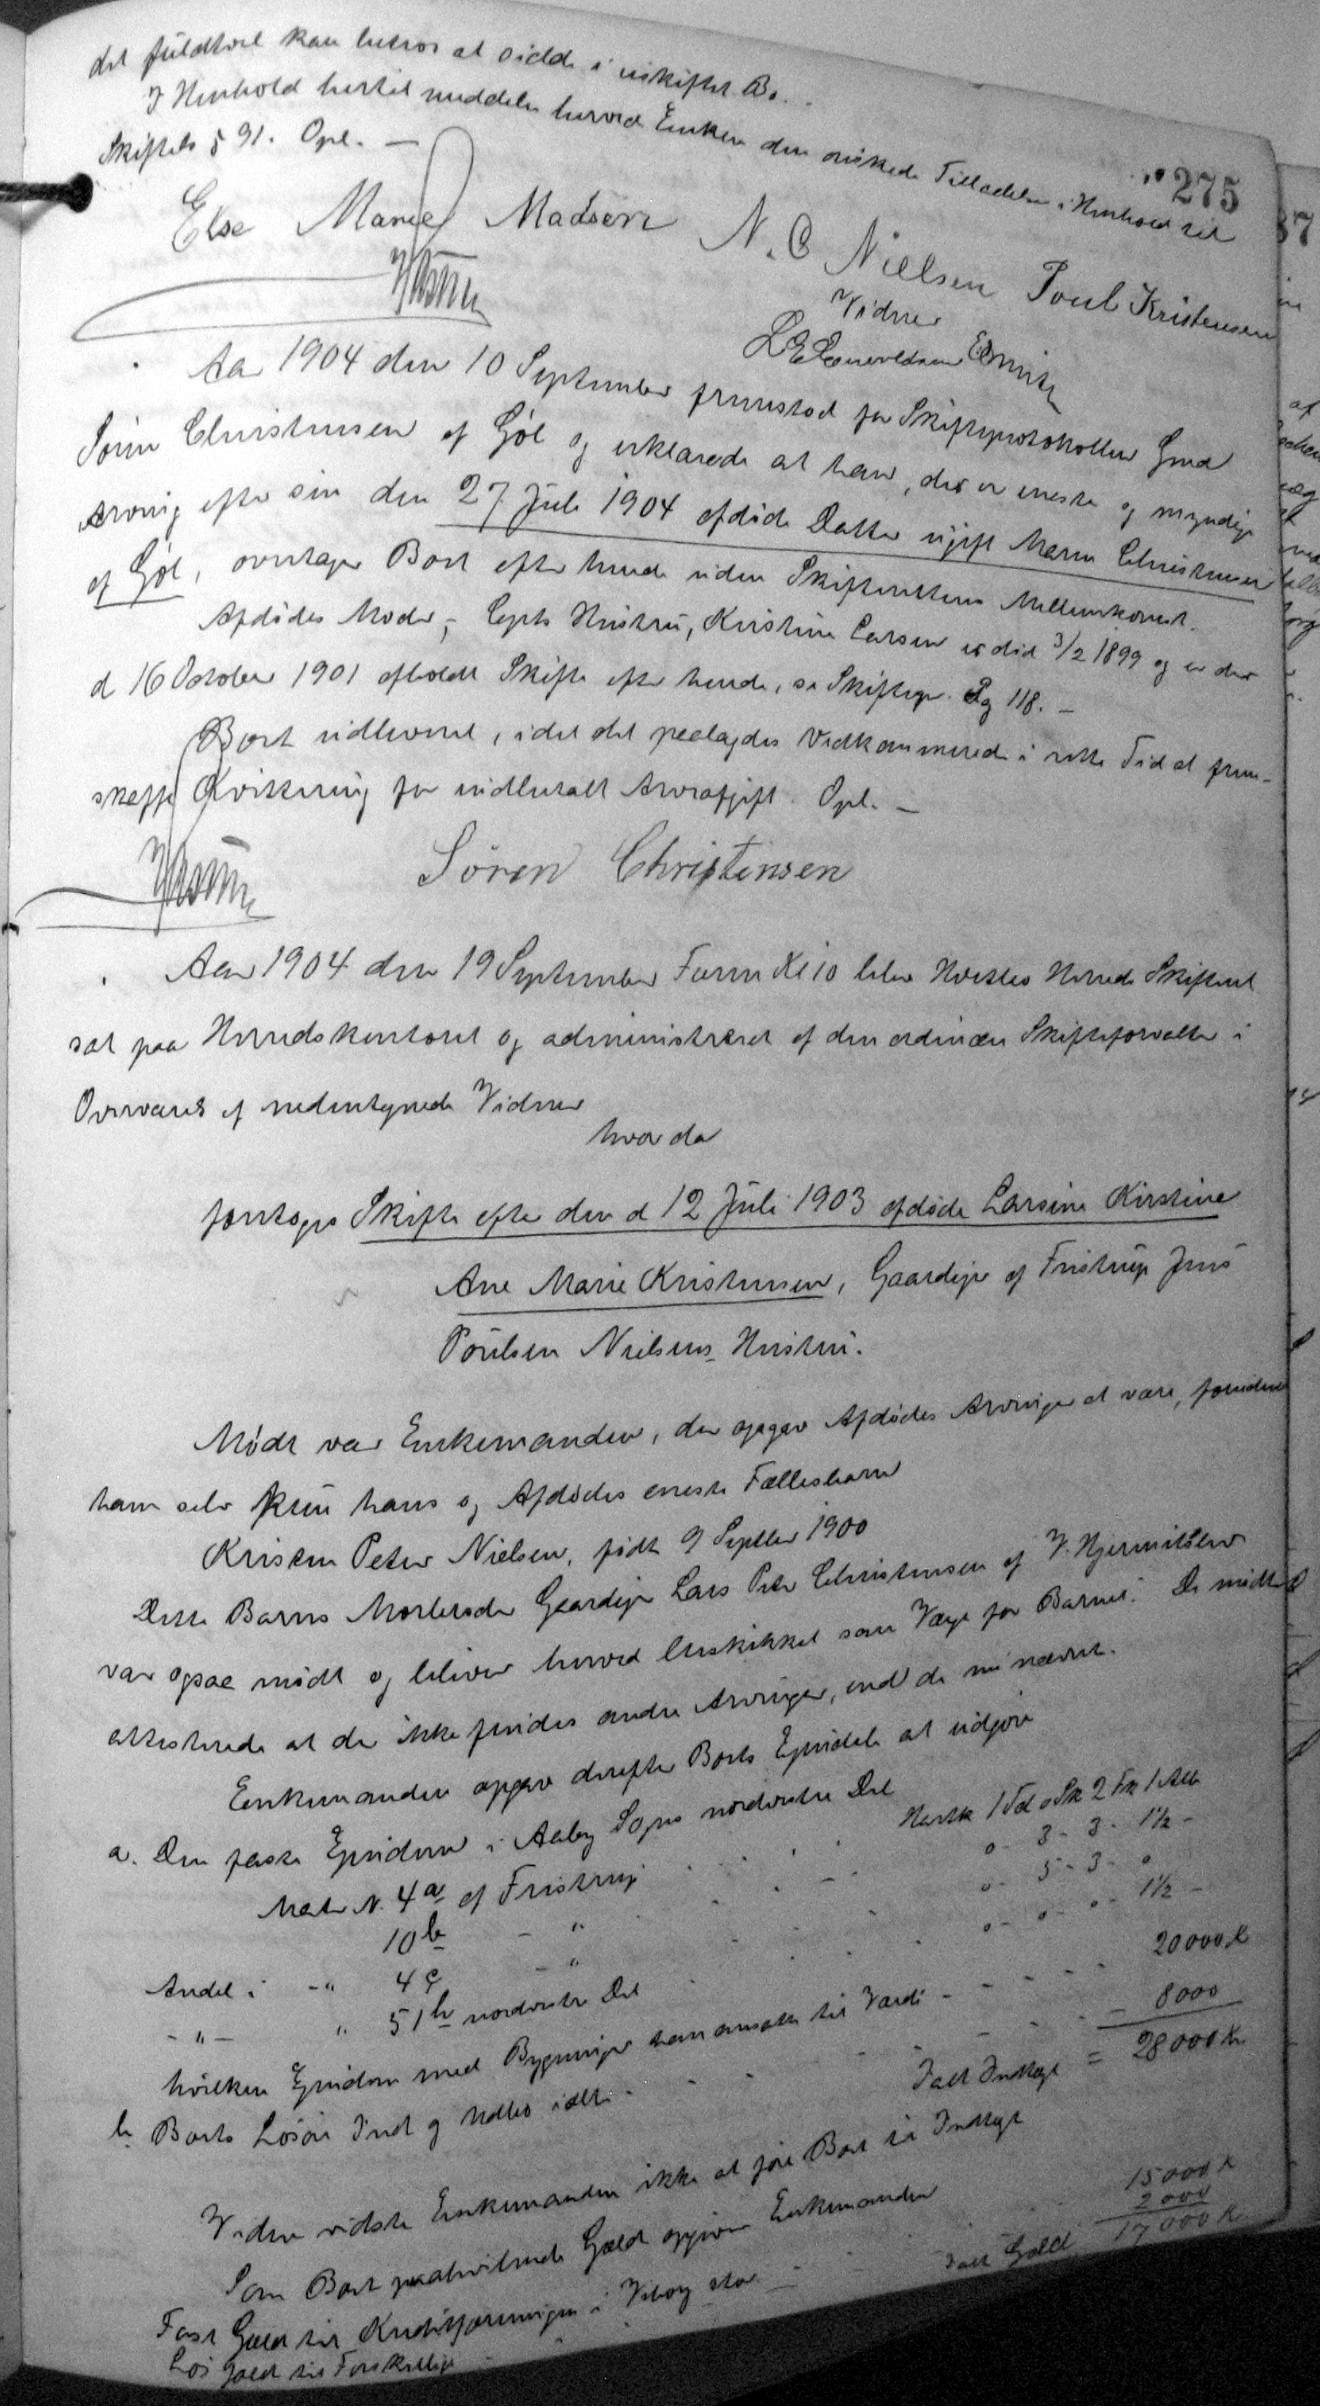 275
det fuldtvel kan betros at sidde i uskiftet Bo.
I Henhold hertil meddeles herved Enken den ønskede Tilladelse i Henhold til
Skiftels § 91. Opl. —
Else Marie Madsen N. C Nielsen Poul Kristensen
Vidner
Aar 1904 den 10 September fremstod for Skifteprotokollen Gmd
Søren Christensen af Gjøl og erklærede at han, der er eneste og myndige
Arving efter sin den 27 Juli 1904 afdøde Datter ugift Maren Christensen
af Gjøl, overtager Boet efter hende uden Skifterettens Mellemkomst.
Afdødes Moder, Cpts Hustru, Kirstine Larsen er død 3/2 1899 og er der
d 16 October 1901 afholdt Skifte efter hende, se Skiftepr. Pg 118. —
Boet udleveret, idet det paalagdes Vedkommende i rette Tid at frem-
skaffe Kvittering for indbetalt Arveafgift. Opl. —
Søren Christensen
Aar 1904 den 19 September Form Kl 10 blev Hvetbo Herreds Skifteret
sat paa Herredskontoret og administreret af den ordinære Skifteforvalter i
Overværelse af nedentegnede Vidner
hvor da
foretoges Skifte efter den d 12 Juli 1903 afdøde Larsine Kirstine
Ane Marie Kristensen, Gaardejer af Fristrup Jens
Poulsen Nielsens Hustru.
Mødt var Enkemanden, der opgav Afdødes Arvinger at være, foruden
ham selv kun hans og Afdødes eneste Fællesbarn
Kristen Peter Nielsen, født 9 Septber 1900
Dette Barns Morbroder Gaardejer Lars Peter Christensen af V. Hjermitslev
var ogsaa mødt og bliver herved beskikket som Værge for Barnet. De mødte
attesterede at der ikke findes andre Arvinger, end de nu nævnte.
Enkemanden opgav derefter Boets Ejendele at udgjøre
a. Den faste Ejendom i Aaby Sogns nordvestre Del
Matr N. 4a af Fristrup - - - Hartk 1 Td 0 Sk 2 Fk 1 Alb
10b - " - - - 0 - 3 - 3 - 1½ -
Andel i - " 4c - " - - - 0 - 5 - 3 - 0
- " - " 51b nordvestre Del - - - 0 - 0 - 0 - 1½ -
hvilken Ejendom med Bygninger han ansatte til Værdi - - - - 20000 K
b Boets Løsøre Ind og Udbo idel - - - - 8000
Ialt Indtægt = 28000 Kr
Videre vidste Enkemanden ikke at føre Boet til Indtægt
Som Boet paahvilende Gæld opgiver Enkemanden
Fast Gæld til Kreditforeningen i Viborg stor - 15000 K
Løs Gæld til Forskellige - 2000
Ialt Gæld 17000 K